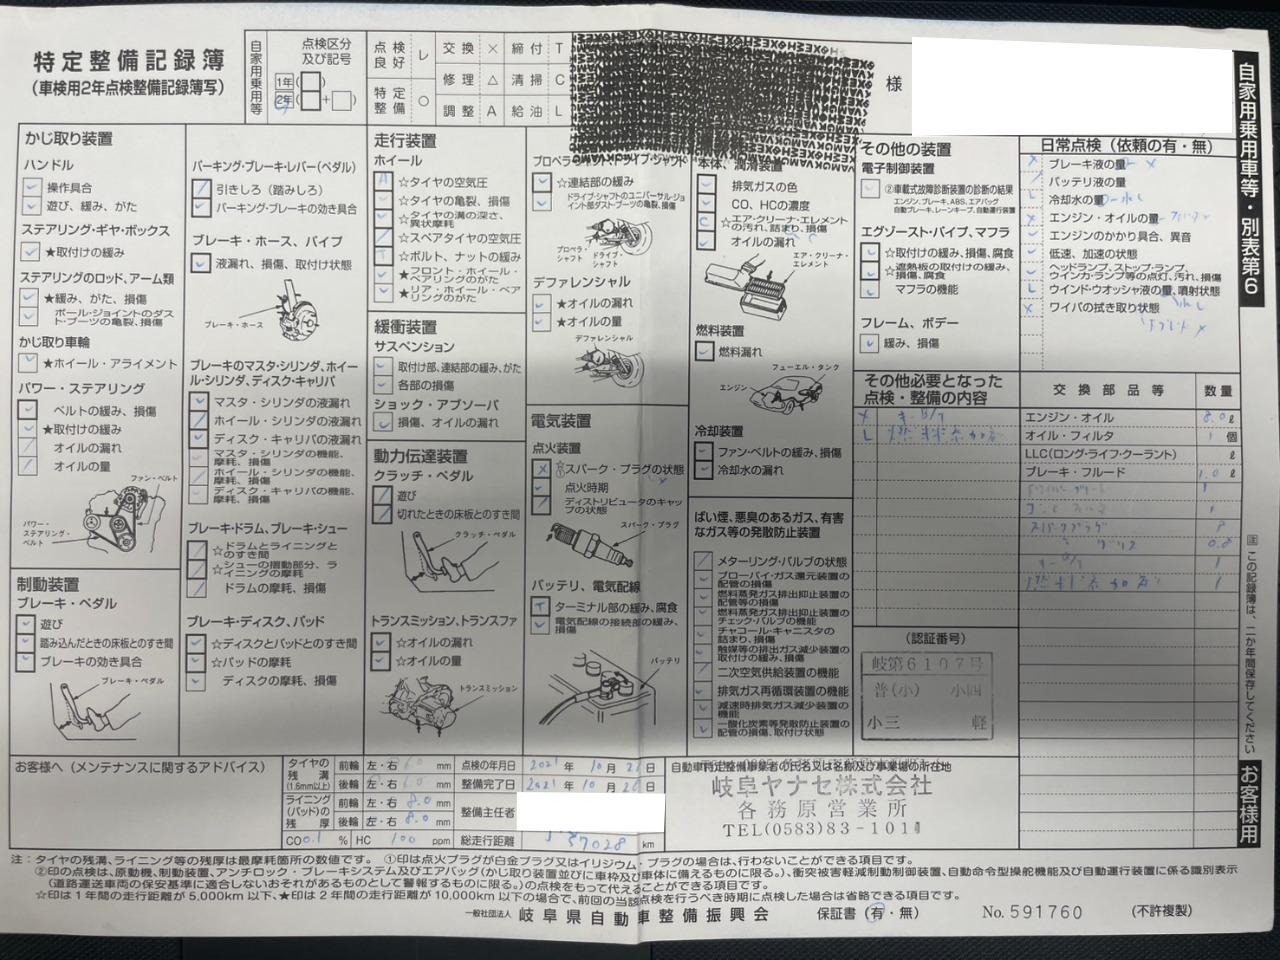 特定整備記録簿
(車検用2年点検整備記録簿写)
自家用乗用等
点検区分及び記号
1年( )
2年( + )
点検良好 レ
交換 × 締付 T
修理 △ 清掃 C
特定整備 ○
調整 A 給油 L
様
自家用乗用車等・別表第6
かじ取り装置
ハンドル
操作具合
遊び、緩み、がた
ステアリング・ギヤ・ボックス
★取付けの緩み
ステアリングのロッド、アーム類
★緩み、がた、損傷
ボール・ジョイントのダスト・ブーツの亀裂、損傷
かじ取り車輪
★ホイール・アライメント
パワー・ステアリング
ベルトの緩み、損傷
★取付けの緩み
オイルの漏れ
オイルの量
ファン・ベルト
パワー・ステアリング・ベルト
制動装置
ブレーキ・ペダル
遊び
踏み込んだときの床板とのすき間
ブレーキの効き具合
ブレーキ・ペダル
パーキング・ブレーキ・レバー(ペダル)
引きしろ(踏みしろ)
パーキング・ブレーキの効き具合
ブレーキ・ホース、パイプ
液漏れ、損傷、取付け状態
ブレーキ・ホース
ブレーキのマスタ・シリンダ、ホイール・シリンダ、ディスク・キャリパ
マスタ・シリンダの液漏れ
ホイール・シリンダの液漏れ
ディスク・キャリパの液漏れ
マスタ・シリンダの機能、摩耗、損傷
ホイール・シリンダの機能、摩耗、損傷
ディスク・キャリパの機能、摩耗、損傷
ブレーキ・ドラム、ブレーキ・シュー
☆ドラムとライニングとのすき間
☆シューの摺動部分、ライニングの摩耗
ドラムの摩耗、損傷
ブレーキ・ディスク、パッド
☆ディスクとパッドとのすき間
☆パッドの摩耗
ディスクの摩耗、損傷
走行装置
ホイール
A ☆タイヤの空気圧
☆タイヤの亀裂、損傷
☆タイヤの溝の深さ、異状摩耗
☆スペアタイヤの空気圧
T ☆ボルト、ナットの緩み
★フロント・ホイール・ベアリングのがた
★リア・ホイール・ベアリングのがた
緩衝装置
サスペンション
取付け部、連結部の緩み、がた
各部の損傷
ショック・アブソーバ
損傷、オイルの漏れ
動力伝達装置
クラッチ・ペダル
遊び
切れたときの床板とのすき間
クラッチ・ペダル
トランスミッション、トランスファ
☆オイルの漏れ
☆オイルの量
トランスミッション
プロペラ・シャフト、ドライブ・シャフト
☆連結部の緩み
ドライブ・シャフトのユニバーサル・ジョイント部ダスト・ブーツの亀裂、損傷
プロペラ・シャフト
ドライブ・シャフト
デファレンシャル
★オイルの漏れ
★オイルの量
デファレンシャル
電気装置
点火装置
× ☆①スパーク・プラグの状態
点火時期
ディストリビュータのキャップの状態
スパーク・プラグ
バッテリ、電気配線
T ターミナル部の緩み、腐食
電気配線の接続部の緩み、損傷
バッテリ
本体、潤滑装置
排気ガスの色
CO、HCの濃度
C ☆エア・クリーナ・エレメントの汚れ、詰まり、損傷
オイルの漏れ
エア・クリーナ・エレメント
燃料装置
燃料漏れ
フューエル・タンク
エンジン
冷却装置
ファン・ベルトの緩み、損傷
冷却水の漏れ
ばい煙、悪臭のあるガス、有害なガス等の発散防止装置
メターリング・バルブの状態
ブローバイ・ガス還元装置の配管の損傷
燃料蒸発ガス排出抑止装置の配管等の損傷
燃料蒸発ガス排出抑止装置のチェック・バルブの機能
チャコール・キャニスタの詰まり、損傷
触媒等の排出ガス減少装置の取付けの緩み、損傷
二次空気供給装置の機能
排気ガス再循環装置の機能
減速時排気ガス減少装置の機能
一酸化炭素等発散防止装置の配管の損傷、取付け状態
その他の装置
電子制御装置
②車載式故障診断装置の診断の結果
エンジン、ブレーキ、ABS、エアバッグ
自動ブレーキ、レーンキープ、自動運行装置
エグゾースト・パイプ、マフラ
☆取付けの緩み、損傷、腐食
☆遮熱板の取付けの緩み、損傷、腐食
マフラの機能
フレーム、ボデー
緩み、損傷
その他必要となった点検・整備の内容
L 燃料添加剤
(認証番号)
岐第6107号
普(小) 小四
小三 軽
日常点検(依頼の有・無)
× ブレーキ液の量
バッテリ液の量
L 冷却水の量
× エンジン・オイルの量
エンジンのかかり具合、異音
低速、加速の状態
ヘッドランプ、ストップ・ランプ、ウインカ・ランプ等の点灯、汚れ、損傷
L ウインド・ウオッシャ液の量、噴射状態
× ワイパの拭き取り状態
交換部品等 数量
エンジン・オイル 8.0 ℓ
オイル・フィルタ 1 個
LLC(ロング・ライフ・クーラント) ℓ
ブレーキ・フルード 1.0 ℓ
スパークプラグ 8
燃料添加剤 1
㊟この記録簿は、二か年間保存してください
お客様用
お客様へ(メンテナンスに関するアドバイス)
タイヤの残溝(1.6mm以上) 前輪 左・右 mm
後輪 左・右 mm
ライニング(パッド)の残厚 前輪 左・右 8.0 mm
後輪 左・右 8.0 mm
CO 0.1 % HC 100 ppm
点検の年月日 2021年 10月 日
整備完了日 2021年 10月 日
整備主任者
総走行距離 37028 km
自動車特定整備事業者の氏名又は名称及び事業場の所在地
岐阜ヤナセ株式会社
各務原営業所
TEL(0583)83-101
注:タイヤの残溝、ライニング等の残厚は最摩耗箇所の数値です。 ①印は点火プラグが白金プラグ又はイリジウム・プラグの場合は、行わないことができる項目です。
②印の点検は、原動機、制動装置、アンチロック・ブレーキシステム及びエアバッグ(かじ取り装置並びに車枠及び車体に備えるものに限る。)、衝突被害軽減制動制御装置、自動命令型操舵機能及び自動運行装置に係る識別表示
(道路運送車両の保安基準に適合しないおそれがあるものとして警報するものに限る。)の点検をもって代えることができる項目です。
☆印は1年間の走行距離が5,000km以下、★印は2年間の走行距離が10,000km以下の場合で、前回の当該点検を行うべき時期に点検した場合は省略できる項目です。
一般社団法人 岐阜県自動車整備振興会 保証書(有・無) No.591760 (不許複製)